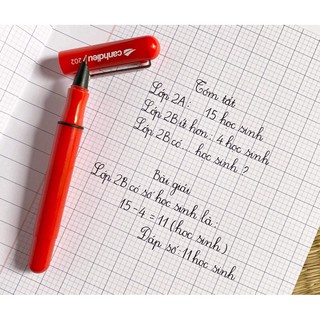 canhdieu / 202
Tóm tắt
Lớp 2A: 15 học sinh
Lớp 2B ít hơn: 4 học sinh
Lớp 2B có ... học sinh ?
Bài giải
Lớp 2B có số học sinh là :
15 - 4 = 11 (học sinh)
Đáp số: 11 học sinh